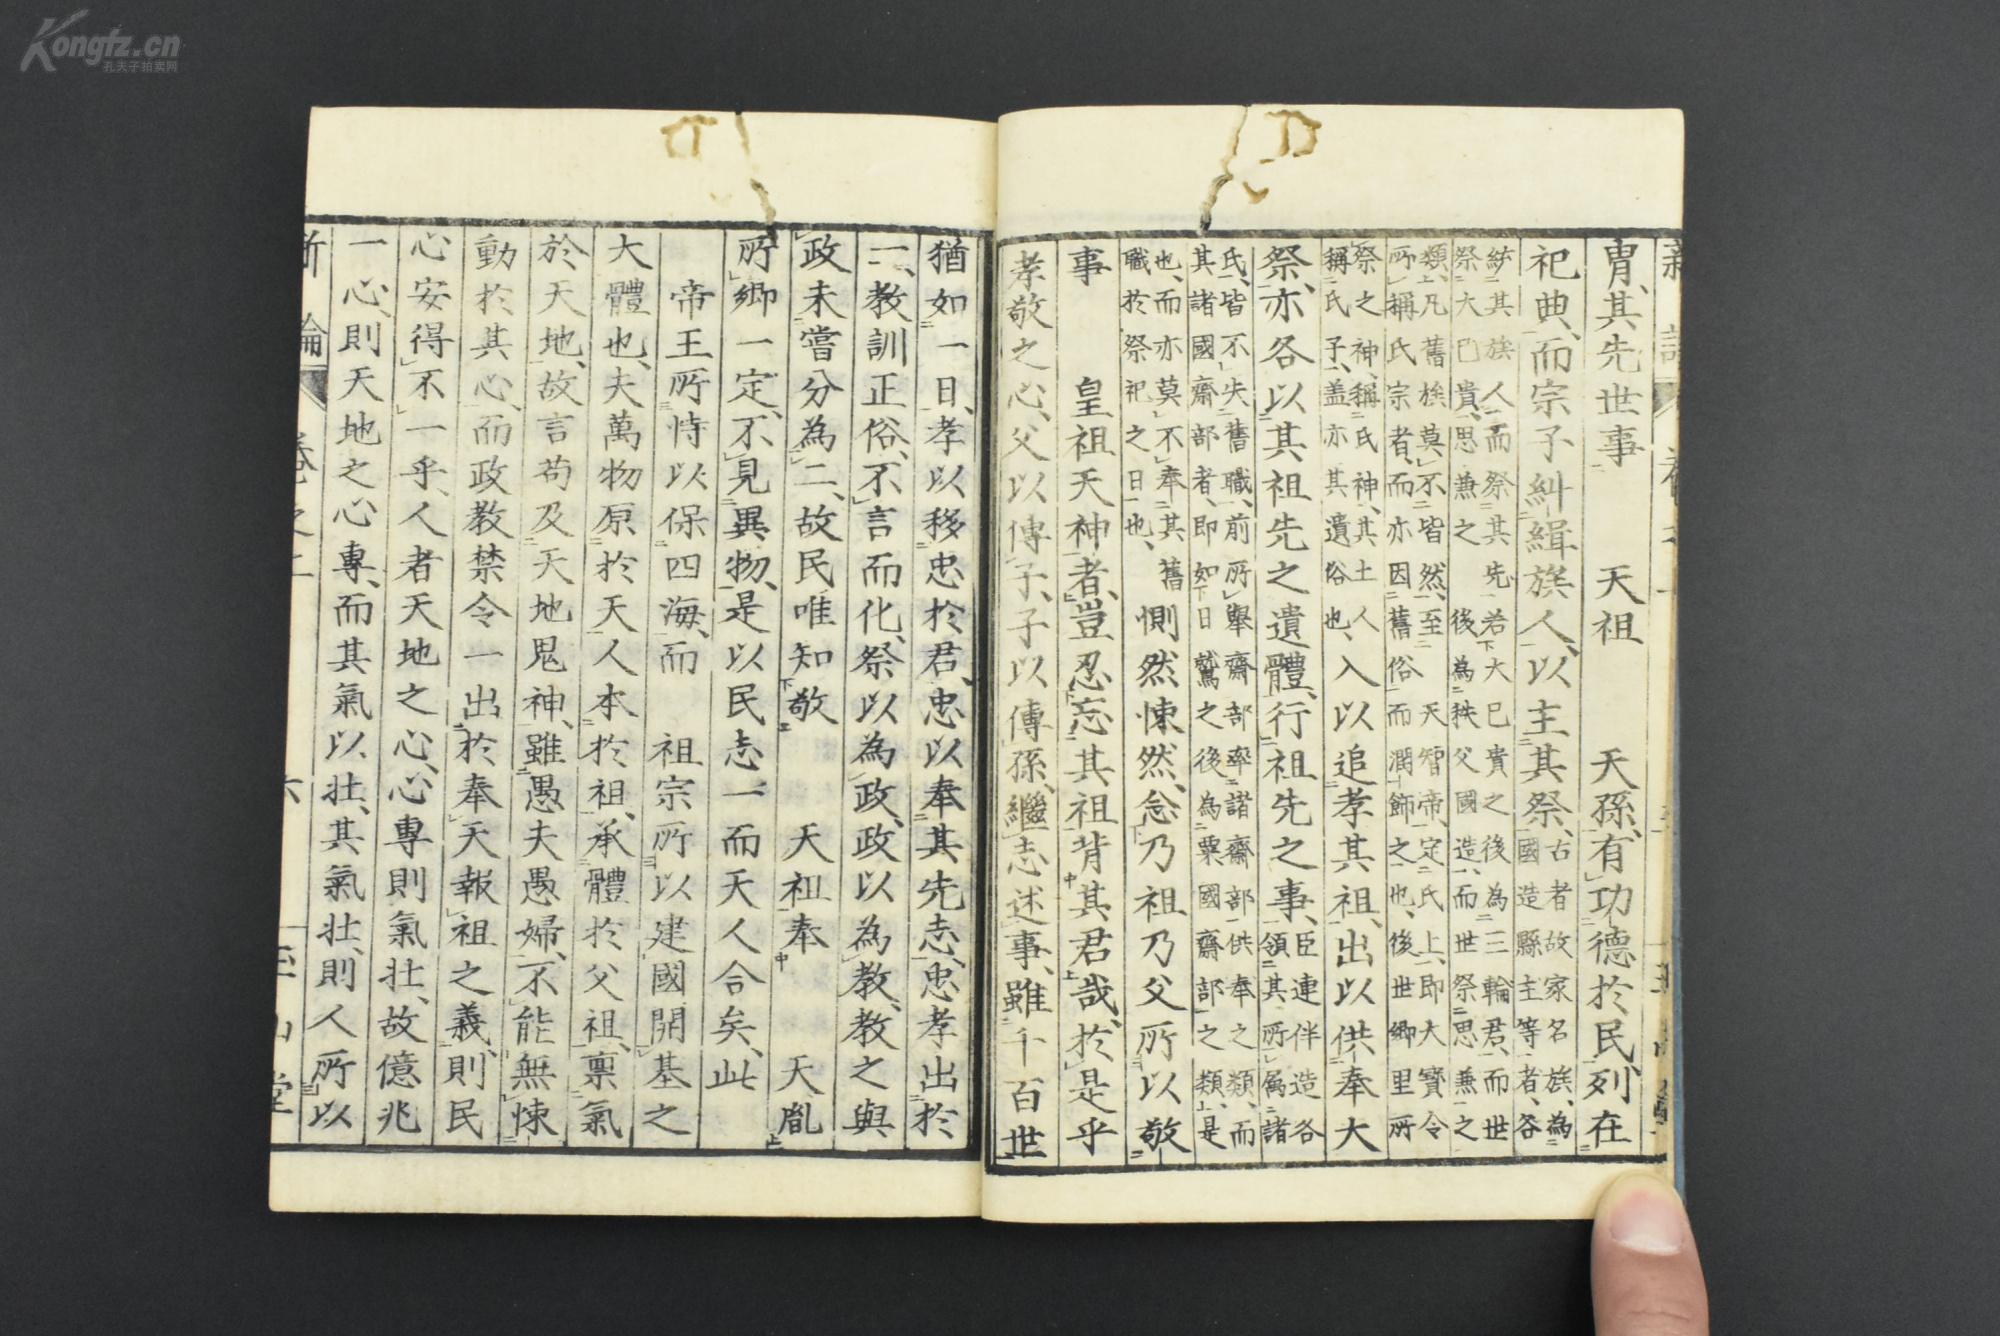 新論
冑、其先世事　天祖　天孫、有功德於民、列在
祀典、而宗子糾緝族人、以主其祭、
古者故家名族、為
國造縣主等者、各
統其族人而祭其先、若大己貴之後為三輪君、而世
祭大己貴、思兼之後為秩父國造、而世祭思兼之
類、凡舊族莫不皆然、至天智帝定氏上、即大寶令
所稱氏宗者、而亦因舊俗而潤飾之也、後世鄉里所
祭之神、稱氏神、其土人
稱氏子、盖亦其遺俗也、
入以追孝其祖、出以供奉大
祭、亦各以其祖先之遺體、行祖先之事、
臣連伴造各
領其所屬諸
氏、皆不失舊職、前所舉齋部率諸齋部供奉之類、而
其諸國齋部者、即如日鷲之後為粟國齋部之類、是
也、而亦莫不奉其舊
職於祭祀之日也、
惻然悚然、念乃祖乃父所以敬
事　皇祖天神者、豈忍忘其祖背其君哉、於是乎
孝敬之心、父以傳子、子以傳孫、繼志述事、雖千百世
猶如一日、孝以移忠於君、忠以奉其先志、忠孝出於
一、教訓正俗、不言而化、祭以為政、政以為教、教之與
政未嘗分為二、故民唯知敬　天祖奉　天胤
所鄉一定、不見異物、是以民志一而天人合矣、此
帝王所恃以保四海、而　祖宗所以建國開基之
大體也、夫萬物原於天、人本於祖、承體於父祖、稟氣
於天地、故言苟及天地鬼神、雖愚夫愚婦、不能無悚
動於其心、而政教禁令一出於奉天報祖之義、則民
心安得不一乎、人者天地之心、心專則氣壯、故億兆
一心、則天地之心專、而其氣以壯、其氣壯、則人所以
新論 卷之上 六 玉山堂
Kongfz.cn
孔夫子拍卖网